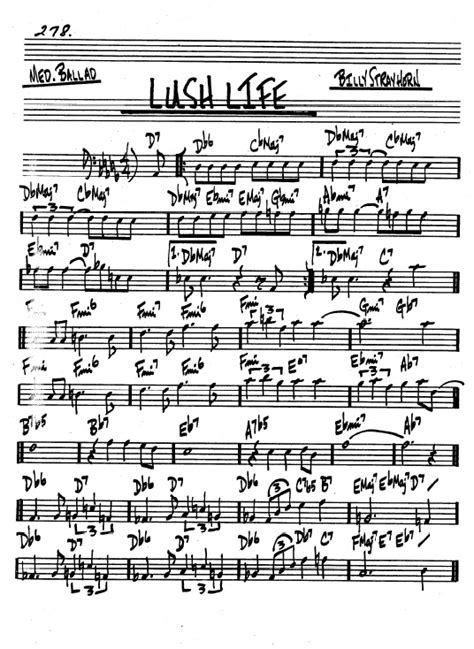 278.
MED. BALLAD
LUSH LIFE
BILLY STRAYHORN
D7 Db6 CbMaj7 DbMaj7 CbMaj7
3
DbMaj7 CbMaj7 DbMaj7 Ebmi7 EMaj7 Gbmi7 Abmi7 A7
3
Ebmi7 D7 1. DbMaj7 D7 2. DbMaj7 C7
Fmi Fmi6 Fmi7 Fmi6 Fmi Gmi7 Gb7
3
Fmi Fmi6 Fmi7 Fmi6 Fmi E07 Ebmi7 Ab7
3 3
B7b5 Bb7 Eb7 A7b5 Ebmi7 Ab7
Db6 D7 Db6 D7 Db6 C7b5 B7 EMaj7 EbMaj7 D7 /
3 3 3
Db6 D7 Db6 D7 Db6 Db7 C7 FMaj7 E7 Eb7 /
3 3 3